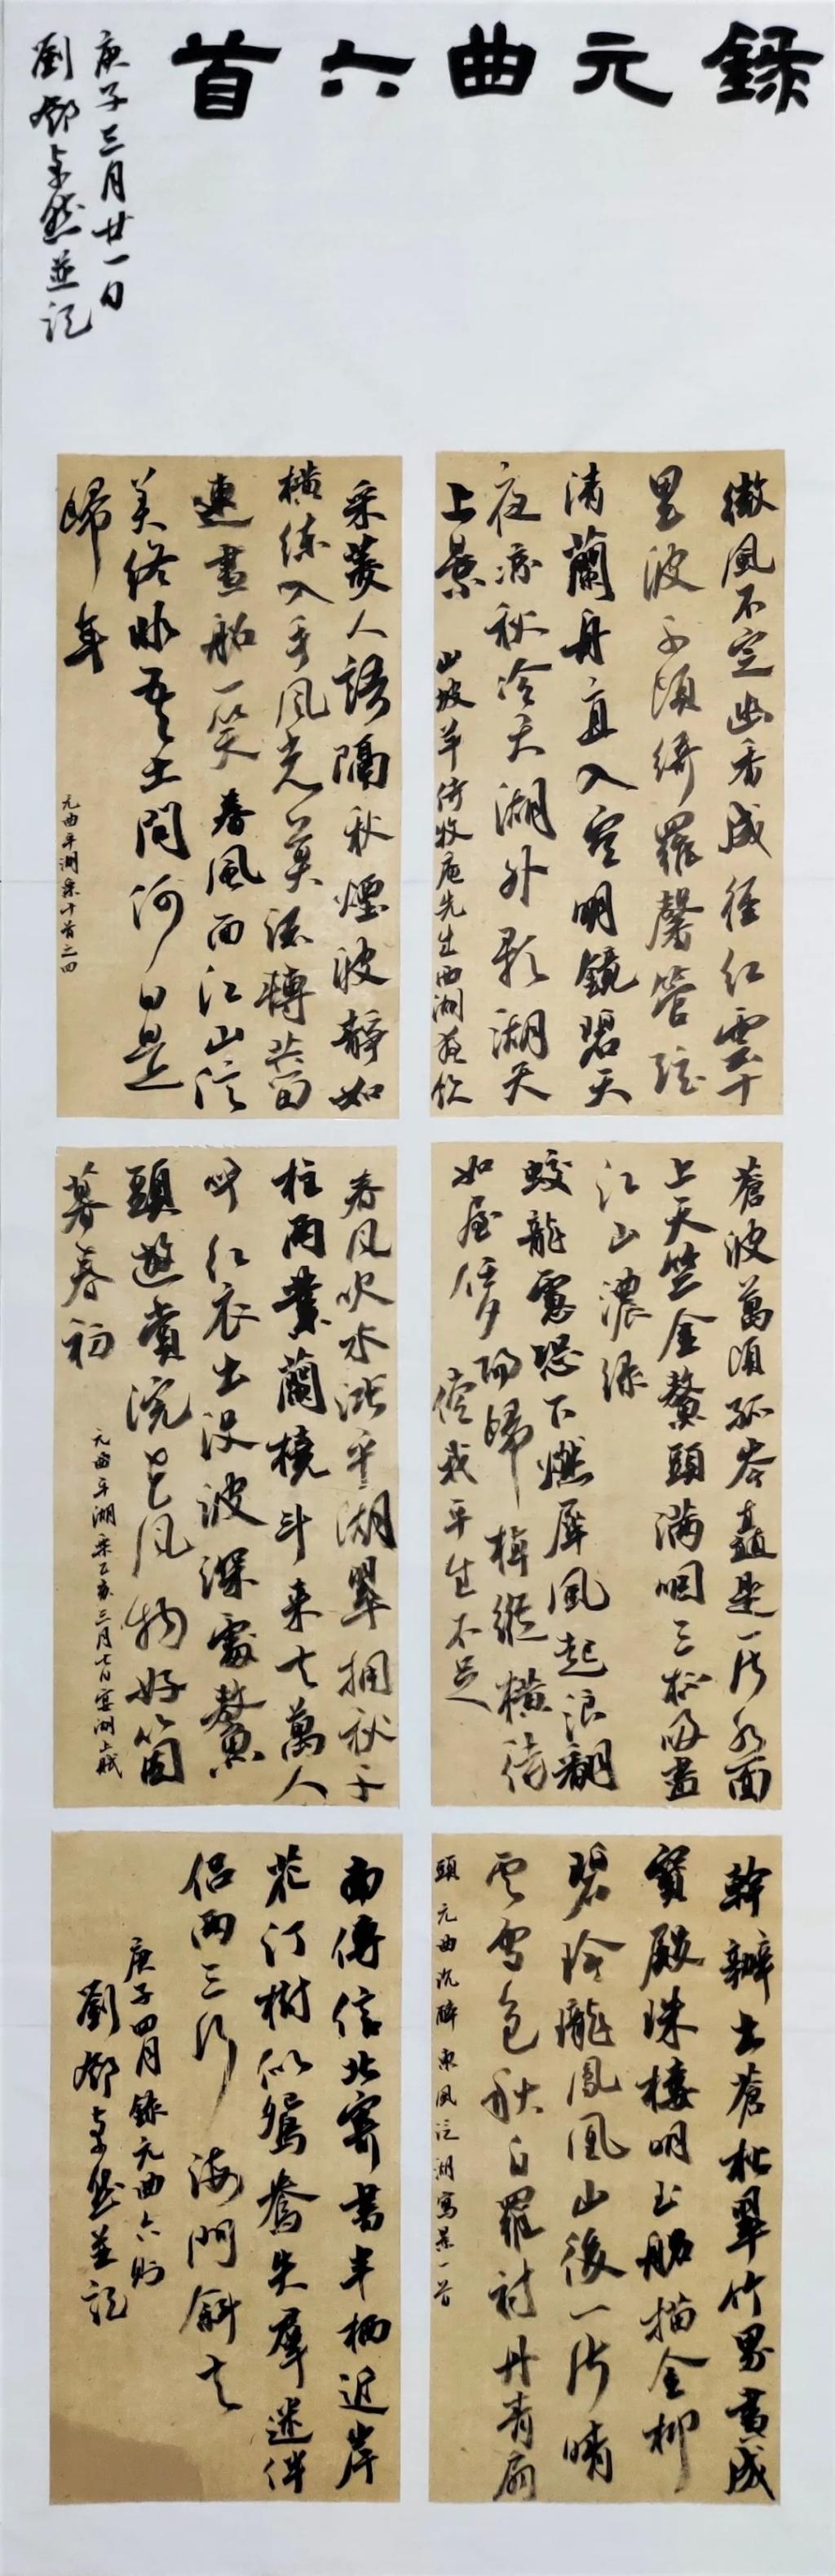 錄元曲六首
庚子三月廿一日
劉鄧並記
微風不定幽香成徑紅雲十
里波千頃綺羅馨管弦
清蘭舟直入空明鏡碧天
夜涼秋冷天湖外影湖天
上景
山坡羊侍牧庵先生西湖夜飲
采菱人語隔秋煙波靜如
橫練入手風光莫流轉共留
連畫船一笑春風面江山信
美終非吾土問何日是
歸年
元曲平湖樂十首之四
蒼波萬頃孤岑矗是一片水面
上天竺金鰲頭滿嚥三杯吸盡
江山濃綠
蛟龍慮恐下燃犀風起浪翻
如屋任夕陽歸棹縱橫待
償我平生不足
春風吹水漲平湖翠擁秋千
柱兩葉蘭橈鬥來去萬人
呼紅衣出沒波深處鰲
頭遊賞浣花風物好箇
暮春初
元曲平湖樂乙亥三月七日宴湖上賦
幹瓣出蒼松翠竹界畫成
寶殿珠樓明玉船描金柳
碧玲瓏鳳凰山後一片晴
雲雪色秋白羅襯丹青扇
頭
元曲沉醉東風泛湖寫景一首
南傳信北寄書半栖近岸
花汀樹似鴛鴦失羣迷伴
侶兩三行海門斜去
庚子四月錄元曲六
劉鄧並記